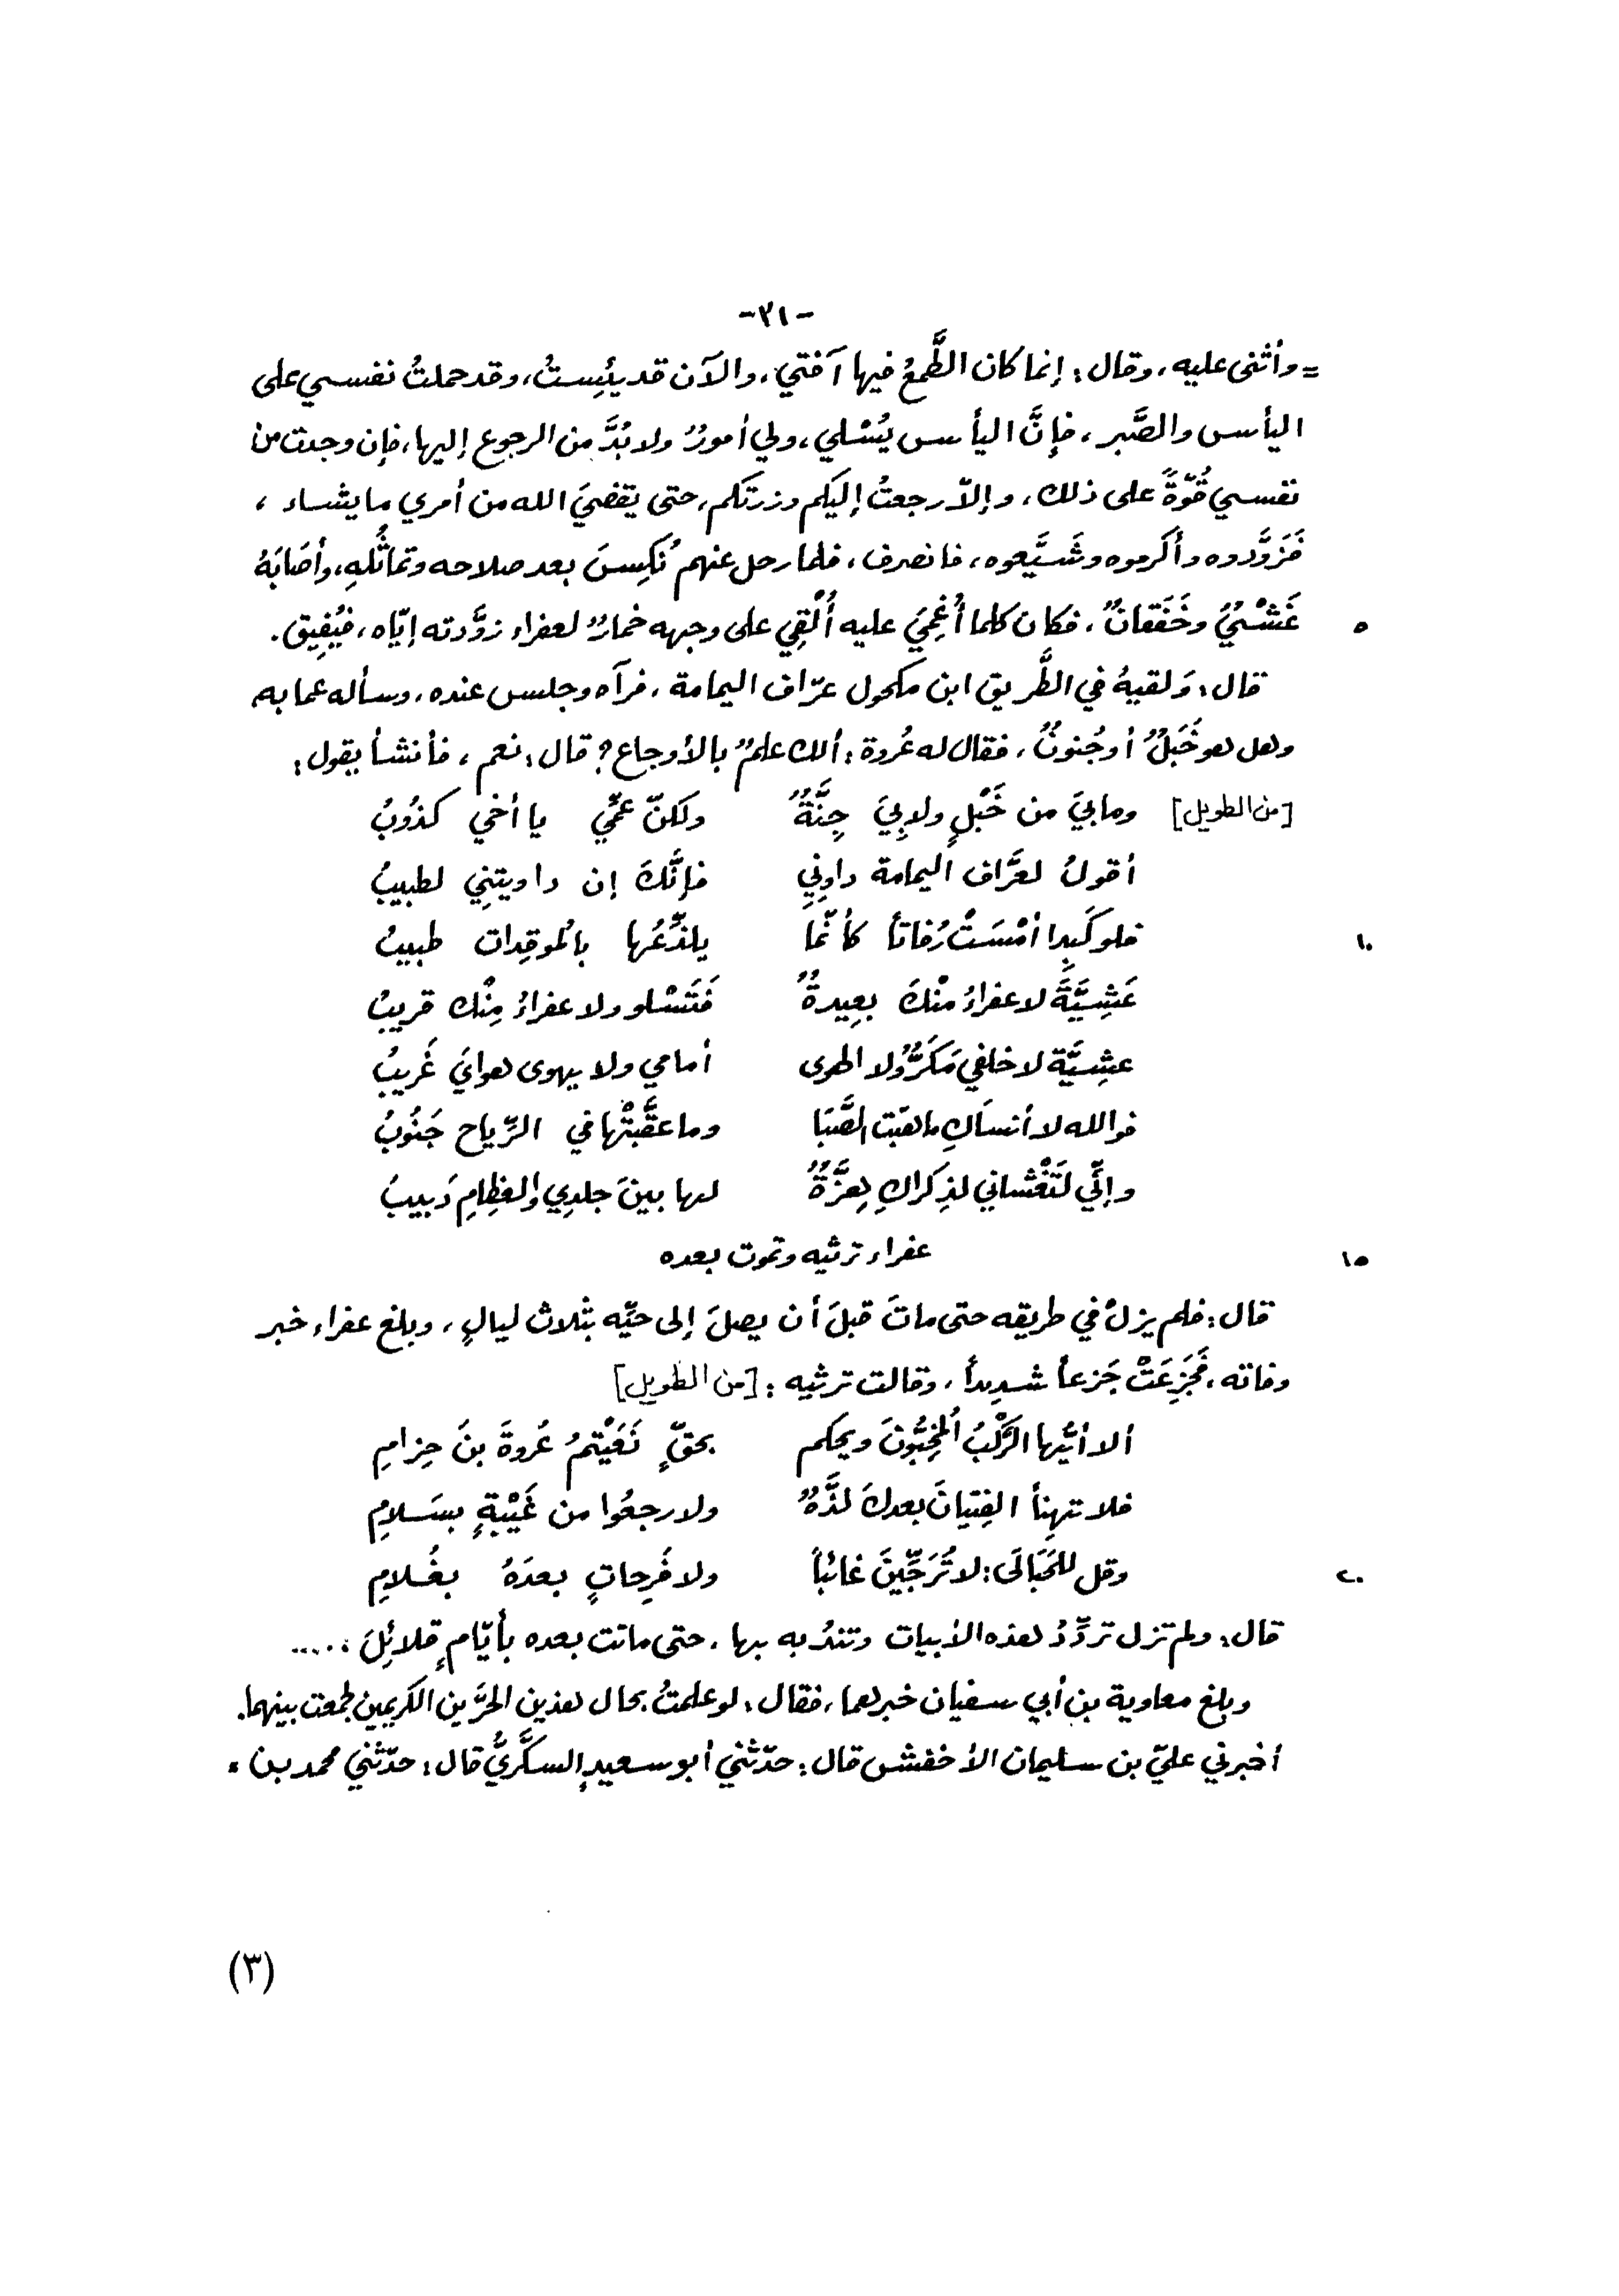 -٢١-
= وأثنى عليه، وقال: إنما كان الطَّمعُ فيها آفتي، والآن قد يئِستُ، وقد حملتُ نفسي على
اليأس والصَّبر، فإِنَّ اليأس يُسْلي، ولي أمورٌ ولا بُدَّ من الرجوع إليها، فإن وجدت من
نفسي قُوّةً على ذلك، وإلاّ رجعتُ إليكم وزرتكم، حتى يقضيَ الله من أمري ما يشاء،
فَزَوَّدوه وأكرموه وشَيَّعوه، فانصرف، فلما رحل عنهم نُكِسَ بعد صلاحه وتماثُلهِ، وأصَابَهُ
٥ غَشْيٌ وخَفَقانٌ، فكان كلما أُغمِيَ عليه أُلْقِيَ على وجهه خمارٌ لعفراء زوَّدته إيّاه، فيُفِيق.
قال: وَلقيهُ في الطَّريق ابن مكحول عرّاف اليمامة، فرآه وجلس عنده، وسأله عما به
وهل هو خَبَلٌ أو جُنونٌ، فقال له عُروة: ألك علمٌ بالأوجاع؟ قال: نعم، فأنشأ يقول:
[من الطويل] ومابيَ من خَبْلٍ ولا بِيَ جِنَّةٌ ولكنّ عمِّي يا أخي كذُوبُ
أقولُ لعرَّاف اليمامة داوِنِي فإنَّكَ إن داويتنِي لطبيبُ
١٠ فلو كَبِدا أمْسَتْ رُفاتاً كأنّما يلذِّعُها بالموقِدات طبيبُ
عَشِيَّةَ لا عفراءُ منْكَ بعِيدةٌ فَتَسْلو ولا عفراءُ مِنْك قريبُ
عشِيَّة لا خلفي مَكَرٌّ ولا الهوى أمامي ولا يهوى هوايَ غَريبُ
فوالله لا أنساَكِ ما هبّت الصَّبَا وما عقَّبتْها في الرِّياح جَنُوبُ
وإنِّي لَتَغْشاني لذِكراكِ هِزَّةٌ لها بينَ جلدِي والعِظامِ دَبيبُ
١٥ عفراء ترثيه وتموت بعده
قال: فلم يزلْ في طريقه حتى ماتَ قبلَ أن يصلَ إلى حيِّه بثلاث ليالٍ، وبلغ عفراء خبر
وفاته، فجَزِعَتْ جَزعاً شديداً، وقالت ترثيه: [من الطويل]
ألا أيُّها الرَّكْبُ المُخِبُّونَ ويحكم بحقٍّ نَعَيْتمُ عُروةَ بنَ حِزامِ
فلا تهنأ الفِتيانَ بعدكَ لذَّةٌ ولا رجعُوا من غَيْبَةٍ بسَلامِ
٢٠ وقل للحَبَالَى: لا تُرَجِّينَ غائباً ولا فُرِحاتٍ بعدَهُ بغُلامِ
قال: ولم تزل تردِّدُ هذه الأبيات وتندُبه بها، حتى ماتت بعده بأيّامٍ قلائِلَ، .....
وبلغ معاوية بن أبي سفيان خبرهما، فقال: لو علمتُ بحال هذين الحرَّين الكريمين لجمعت بينهما.
أخبرني عليّ بن سليمان الأخفش قال: حدّثني أبو سعيدٍ السكَّريُّ قال: حدّثني محمد بن =
(٣)